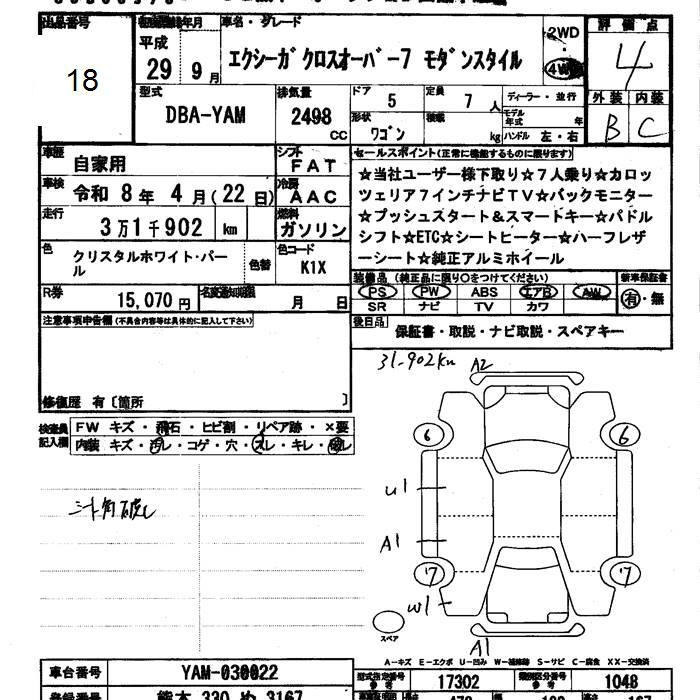 出品番号
18
平成
29年 9月
車名・グレード
エクシーガ クロスオーバー7 モダンスタイル
2WD
・
4WD
評価点
4
外装 内装
B C
型式
DBA-YAM
排気量
2498
cc
ドア
5
定員
7人
ディーラー・並行
形状
ワゴン
積載
kg
モデル年式 年
ハンドル 左・右
車歴
自家用
シフト
FAT
車検
令和 8年 4月(22日)
冷房
AAC
走行
3万1千902 km
燃料
ガソリン
色
クリスタルホワイト・パール
色替
色コード
K1X
R券
15,070円
名変通知期限
月 日
セールスポイント(正常に機能するものに限ります)
☆当社ユーザー様下取り☆7人乗り☆カロッ
ツェリア7インチナビTV☆バックモニター
☆プッシュスタート&スマートキー☆パドル
シフト☆ETC☆シートヒーター☆ハーフレザ
ーシート☆純正アルミホイール
装備品 (純正品に限り○をつけてください)
PS PW ABS エアB AW
SR ナビ TV カワ
新車保証書
有・無
後日品
保証書・取説・ナビ取説・スペアキー
注意事項申告欄(不具合内容等は具体的に記入して下さい)
修復歴 有〔箇所 〕
検査員記入欄
FW キズ・飛石・ヒビ割・リペア跡・×要
内装 キズ・汚レ・コゲ・穴・スレ・キレ・破レ
31-902km
A2
6 6
U1
A1
7 7
W1
スペア
A1
A-キズ E-エクボ U-凹み W-補修跡 S-サビ C-腐食 XX-交換済
車台番号
YAM-030022
型式指定番号
17302
類別区分番号
1048
登録番号
熊本 330 め 3167